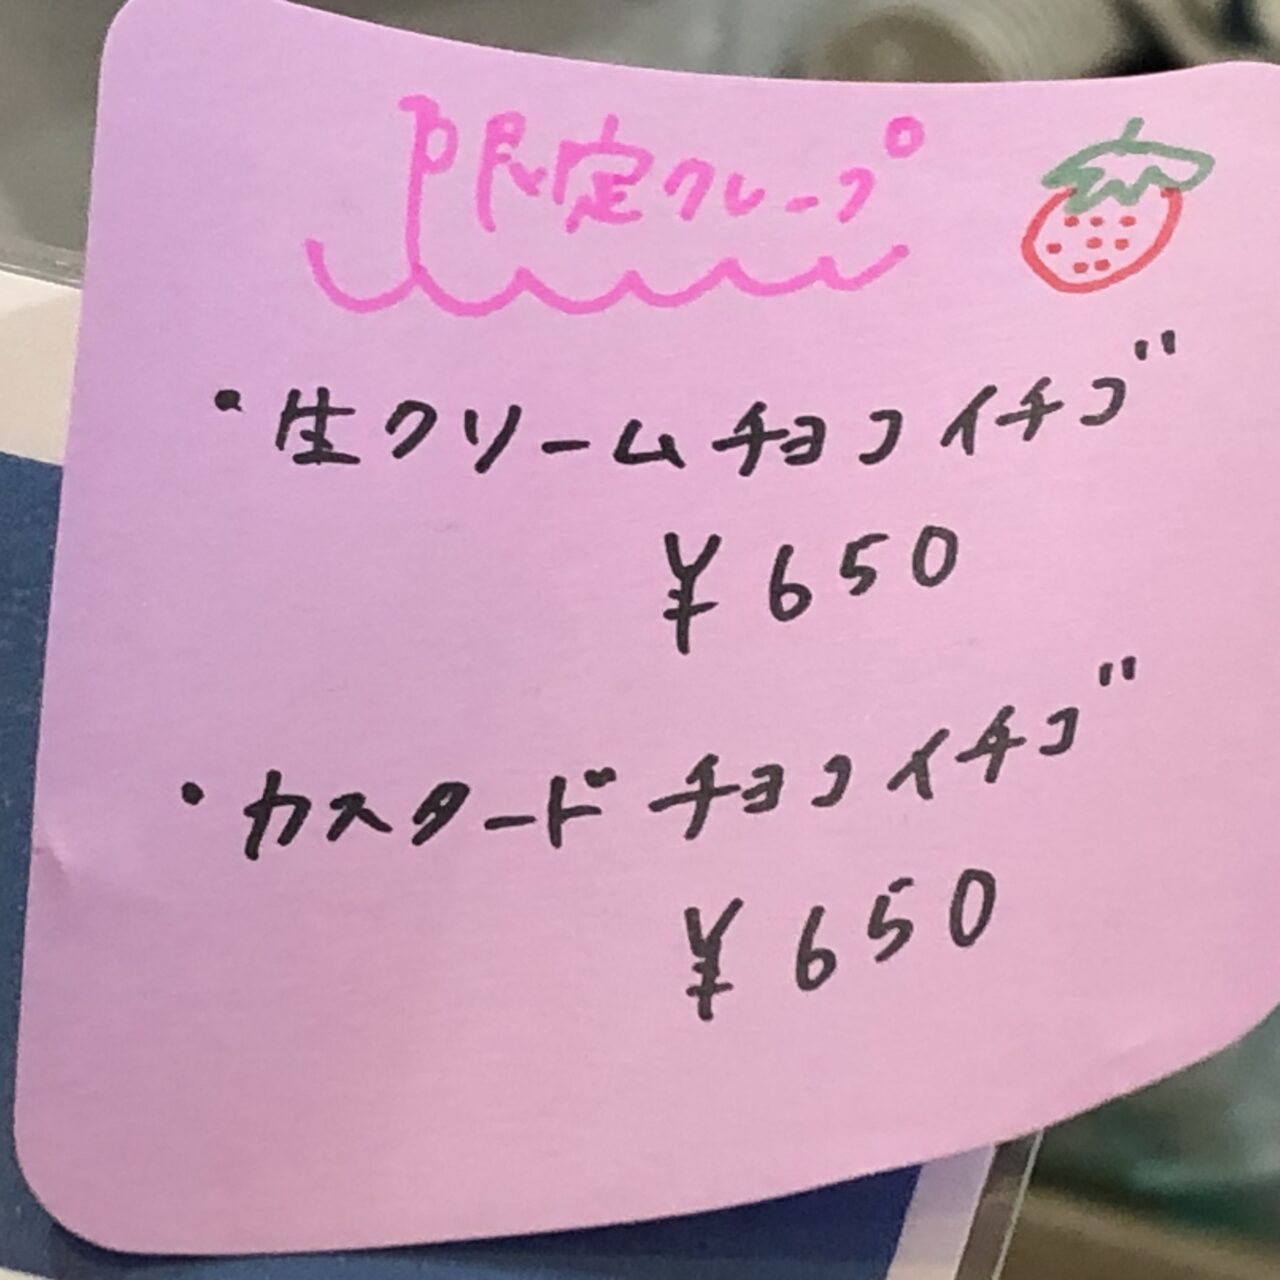 限定クレープ
・生クリームチョコイチゴ
¥650
・カスタードチョコイチゴ
¥650